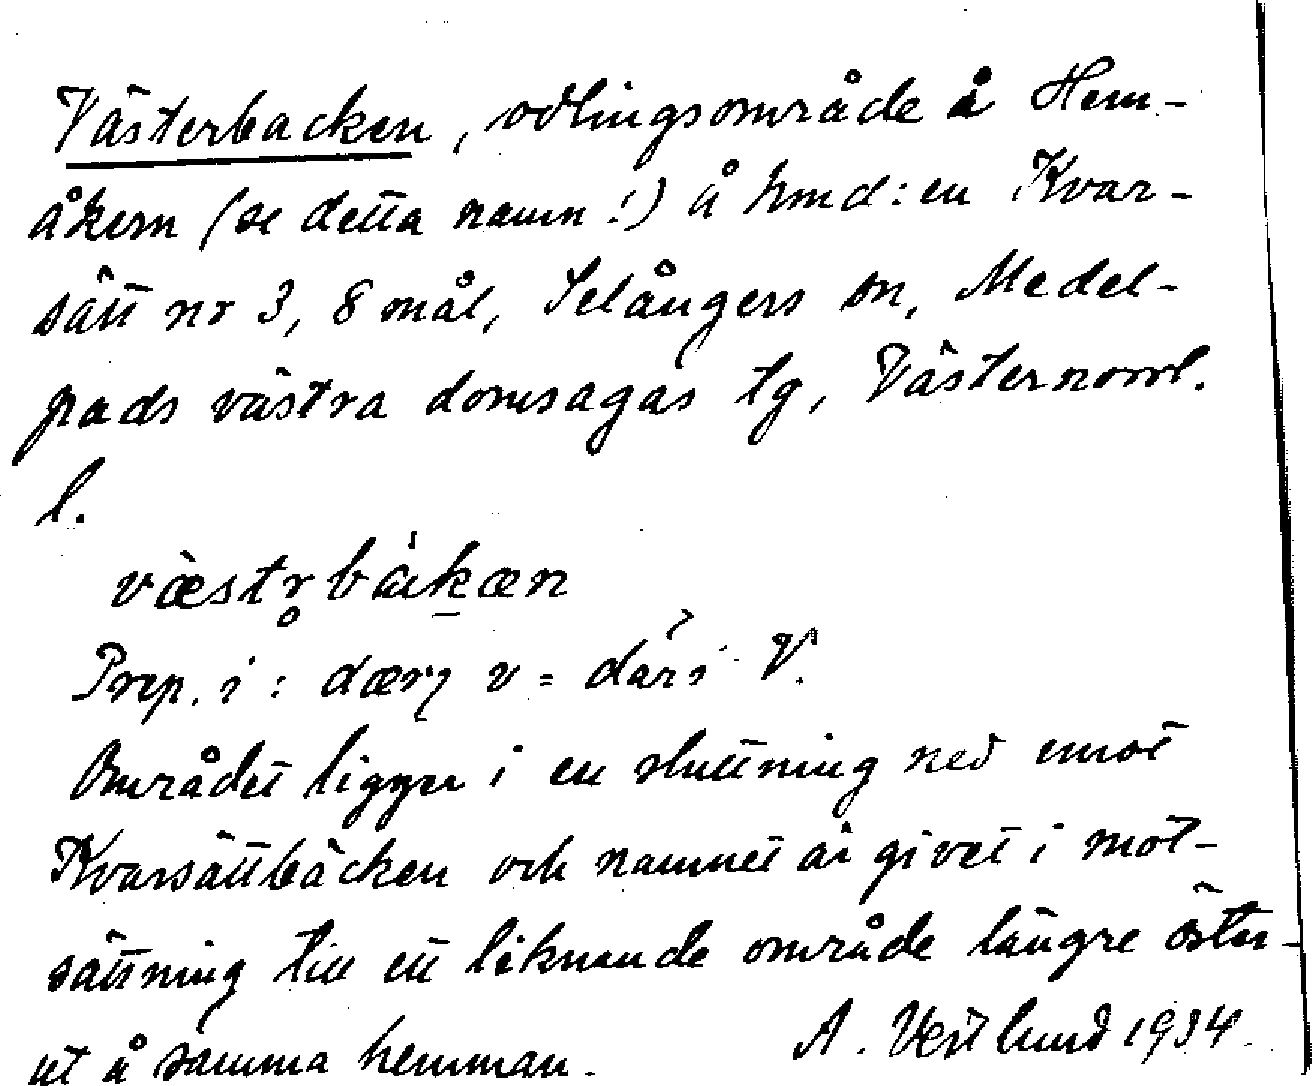 Västerbacken, odlingsområde å Hem-
åkern (se detta namn!) å hmd:en Kvar-
sätt nr 3, 8 mål, Selångers sn, Medel-
pads västra domsagas tg, Västernorrl.
l.
væstr̥bàkæn
Prep. i: dær̨ v = där i V.
Området ligger i en sluttning ned emot
Kvarsättbäcken och namnet är givet i mot-
sättning till ett liknande område längre öster-
ut å samma hemman.
A. Vestlund 1934.